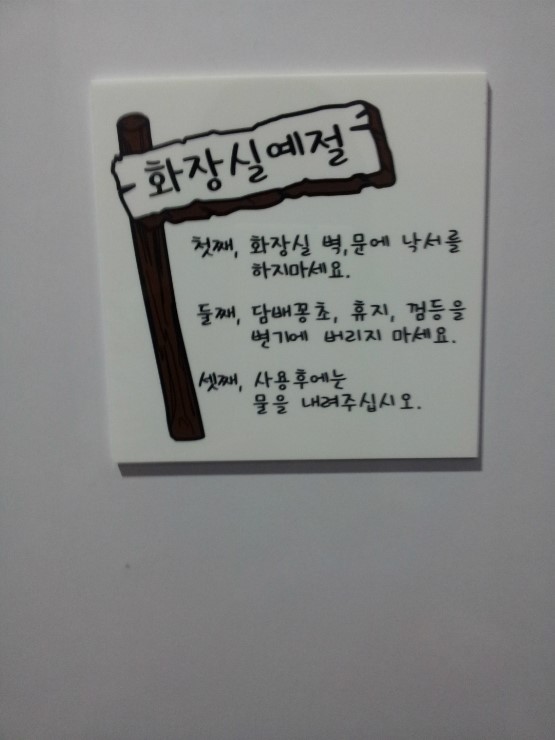 화장실예절
첫째, 화장실 벽,문에 낙서를
하지마세요.
둘째, 담배꽁초, 휴지, 껌등을
변기에 버리지 마세요.
셋째, 사용후에는
물을 내려주십시오.